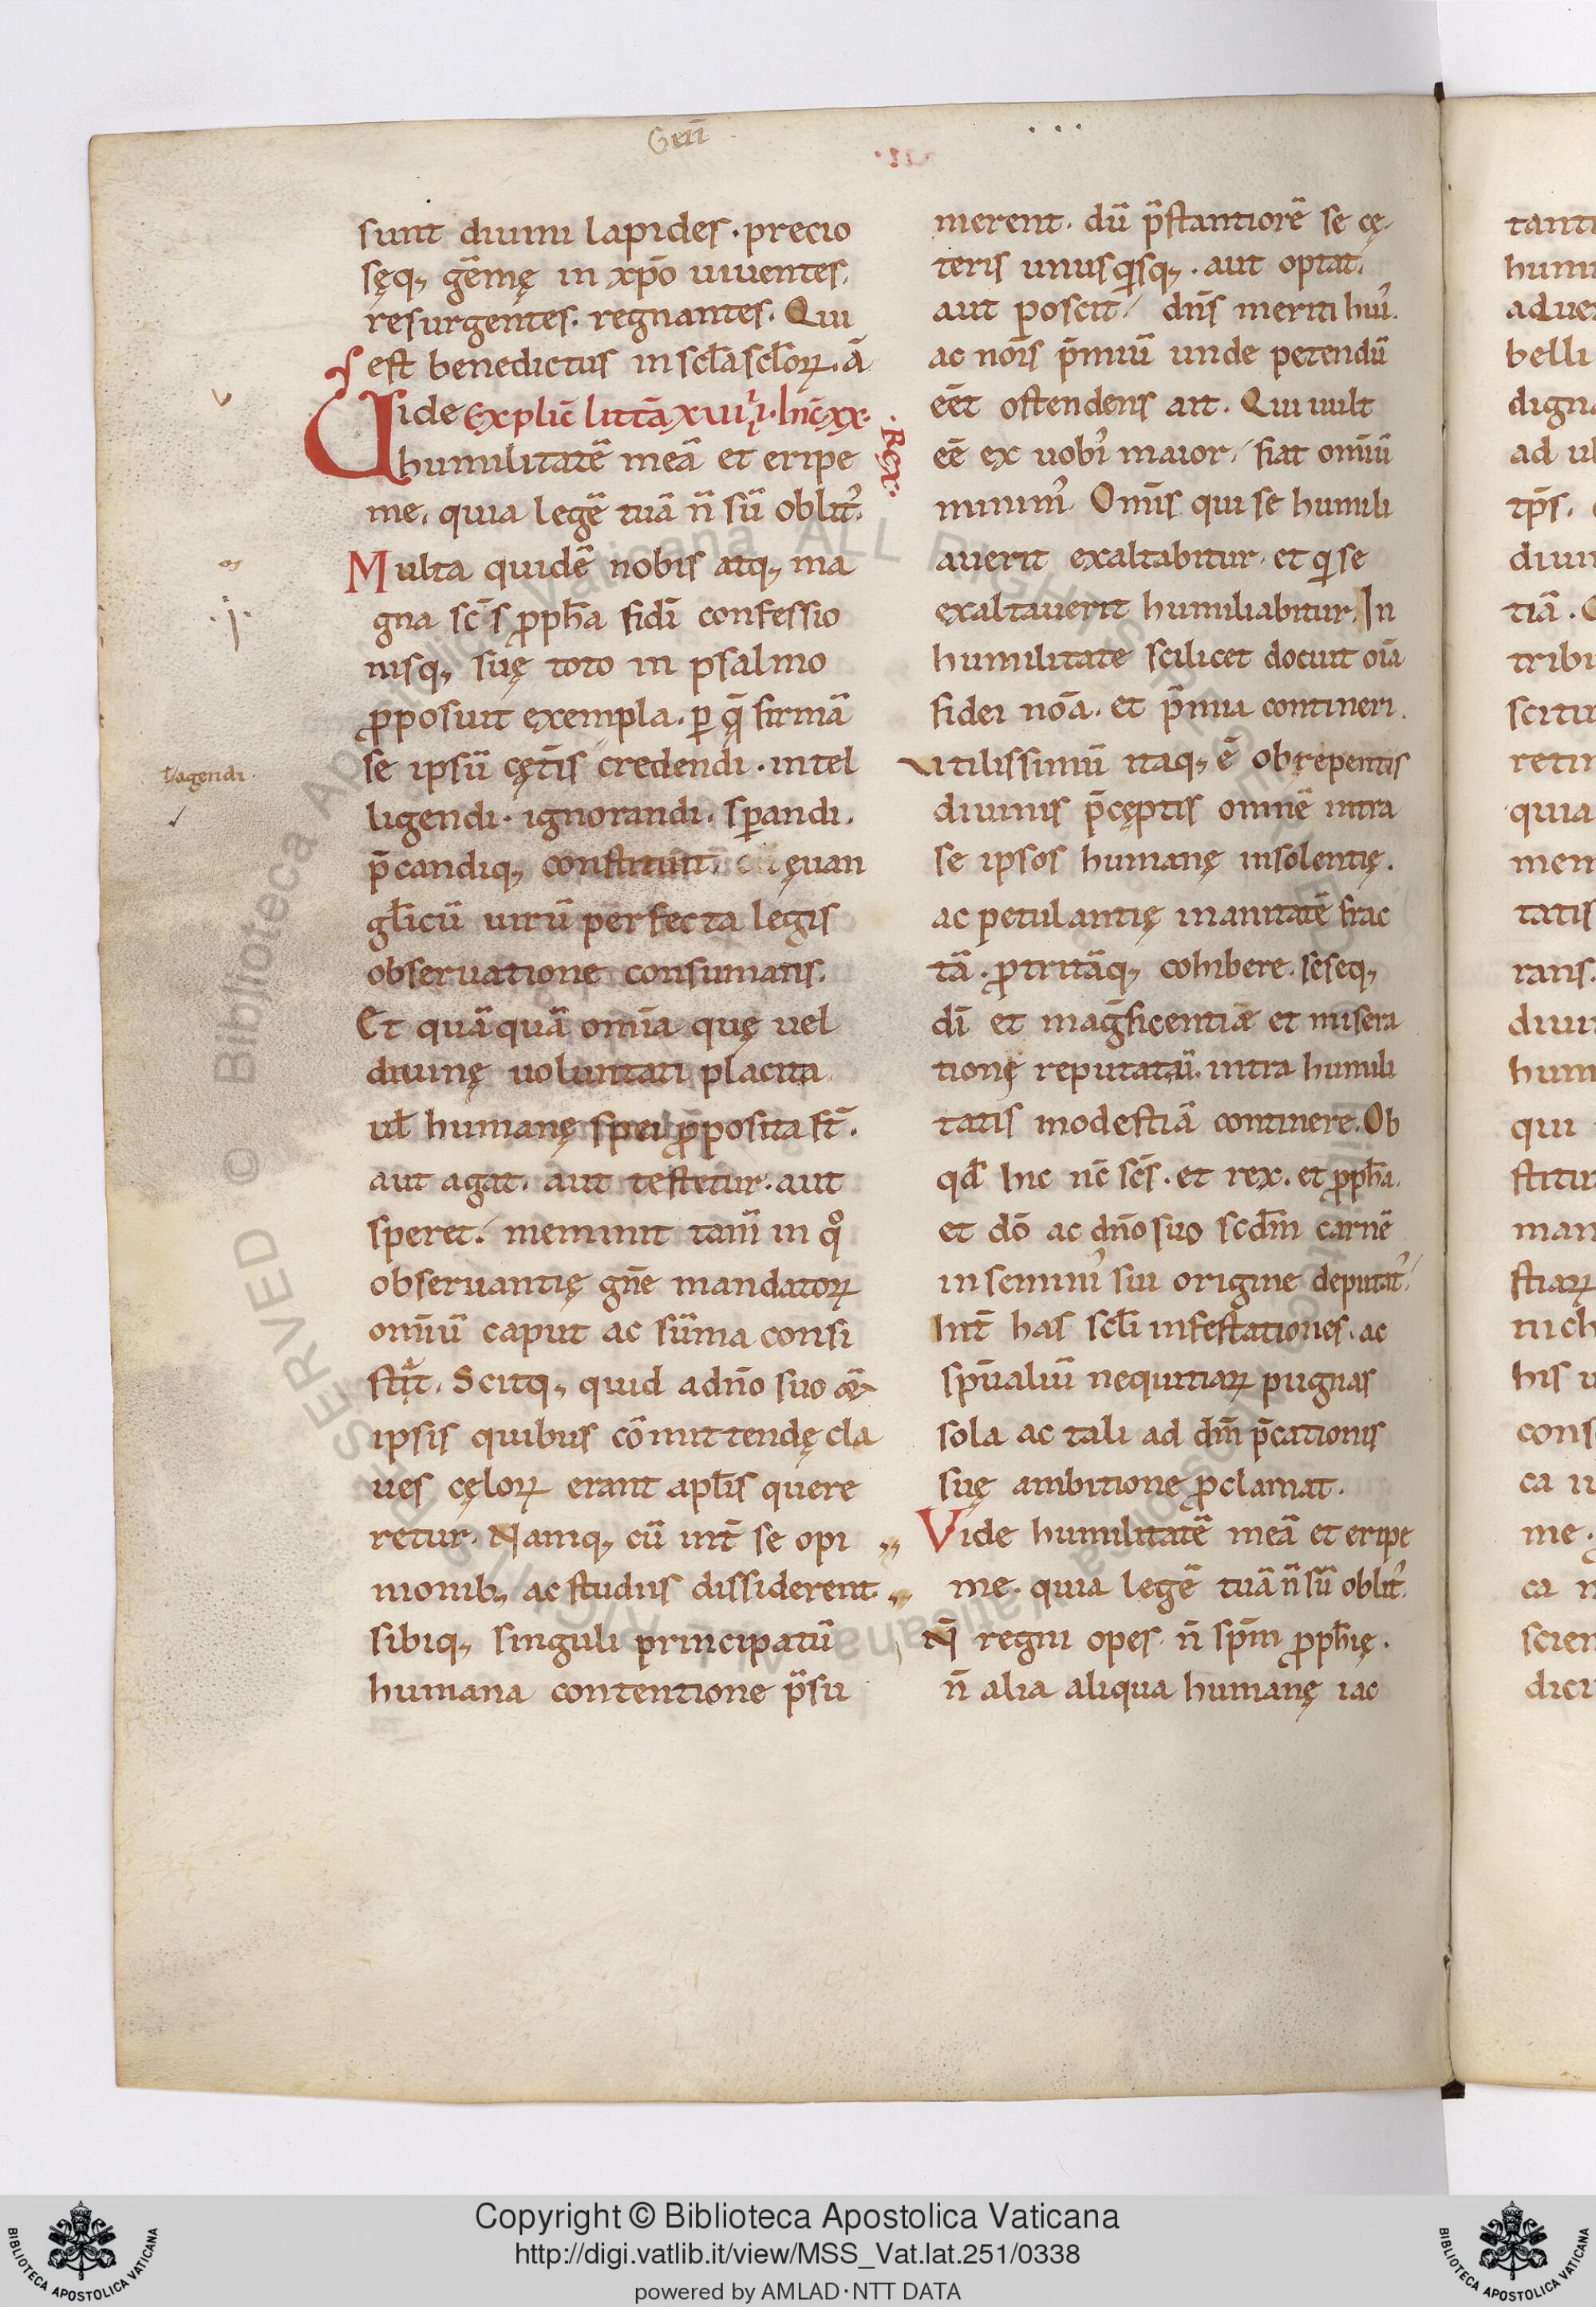 Gen̄
sunt diuini lapides · precio
sęq; gēmę in xp̄o uiuentes.
resurgentes. regnantes. Qui
est benedictus in scl̄a scl̄oꝝ. ā
Uide Explic̄ litt̄a xuiii. Inc̄ xx.
· Rex ·
humilitatē meā et eripe
me. quia legē tuā n̄ sū oblit᾿.
Multa quidē nobis atq; ma
gna sc̄s ꝓph̄a fidī confessio
nisq; suę toto in psalmo
ꝓposuit exempla. ꝑ q̄ firmā
se ipsū cęt̄is credendi · intel
ł agendi ·
ligendi · ignorandi. sꝑandi.
p̄candiq; constituit. ęuan
gl̄icū uirū perfecta legis
obseruatione consumans.
Et quāquā omīa quę uel
diuinę uoluntati placita
ul̄ humanę spei ꝓposita st̄.
aut agat. aut testetur. aut
speret. meminit tam̄ in qͦ
obseruantię gn̄e mandatoꝝ
omīū caput ac sūma consi
stit. Scitq; quid a dn̄o suo
ipsis quibus cōmittendę cla
ues cęloꝝ erant apl̄is quere
retur. Namq; cū int̄ se opi
nionib; ac studiis dissiderent.
sibiq; singuli principatū
humana contentione p̄su
merent. dū p̄stantiorē se cę
teris unusqisq; . aut optat.
aut poscit. dn̄s meriti hui᾿.
ac nōis p̄miū unde petendū
eēt ostendens ait. Qui uult
eē ex uob᾿ maior. fiat omīū
minim᾿. Omīs qui se humili
auerit exaltabitur. et qi se
exaltauerit humiliabitur. In
humilitate scilicet docuit oīa
fidei nōa. et p̄mia contineri.
Utilissimū itaq; ē obrepentis
diuinis p̄cęptis omnē intra
se ipsos humanę insolentię.
ac petulantię inanitatē frac
tā. ꝓtritāq; cohibere. seseq;
dī et magn̄ficentiæ et misera
tionę reputatā. intra humili
tatis modestiā continere. Ob
qd̄ hic nc̄ sc̄s. et rex. et ꝓph̄a.
et dō ac dn̄o suo scdm̄ carnē
in semini᾿ sui origine deputat᾿.
Int̄ has scl̄i infestationes. ac
spūaliū nequitiaꝝ pugnas
sola ac tali ad dm̄ p̄cationis
suę ambitione ꝓclamat.
Vide humilitatē meā et eripe
me. quia legē tuā n̄ sū oblit᾿.
N̄ regni opes. n̄ spm̄ ꝓph̄ię.
n̄ alia aliqua humanę iac
Copyright © Biblioteca Apostolica Vaticana
http://digi.vatlib.it/view/MSS_Vat.lat.251/0338
powered by AMLAD · NTT DATA